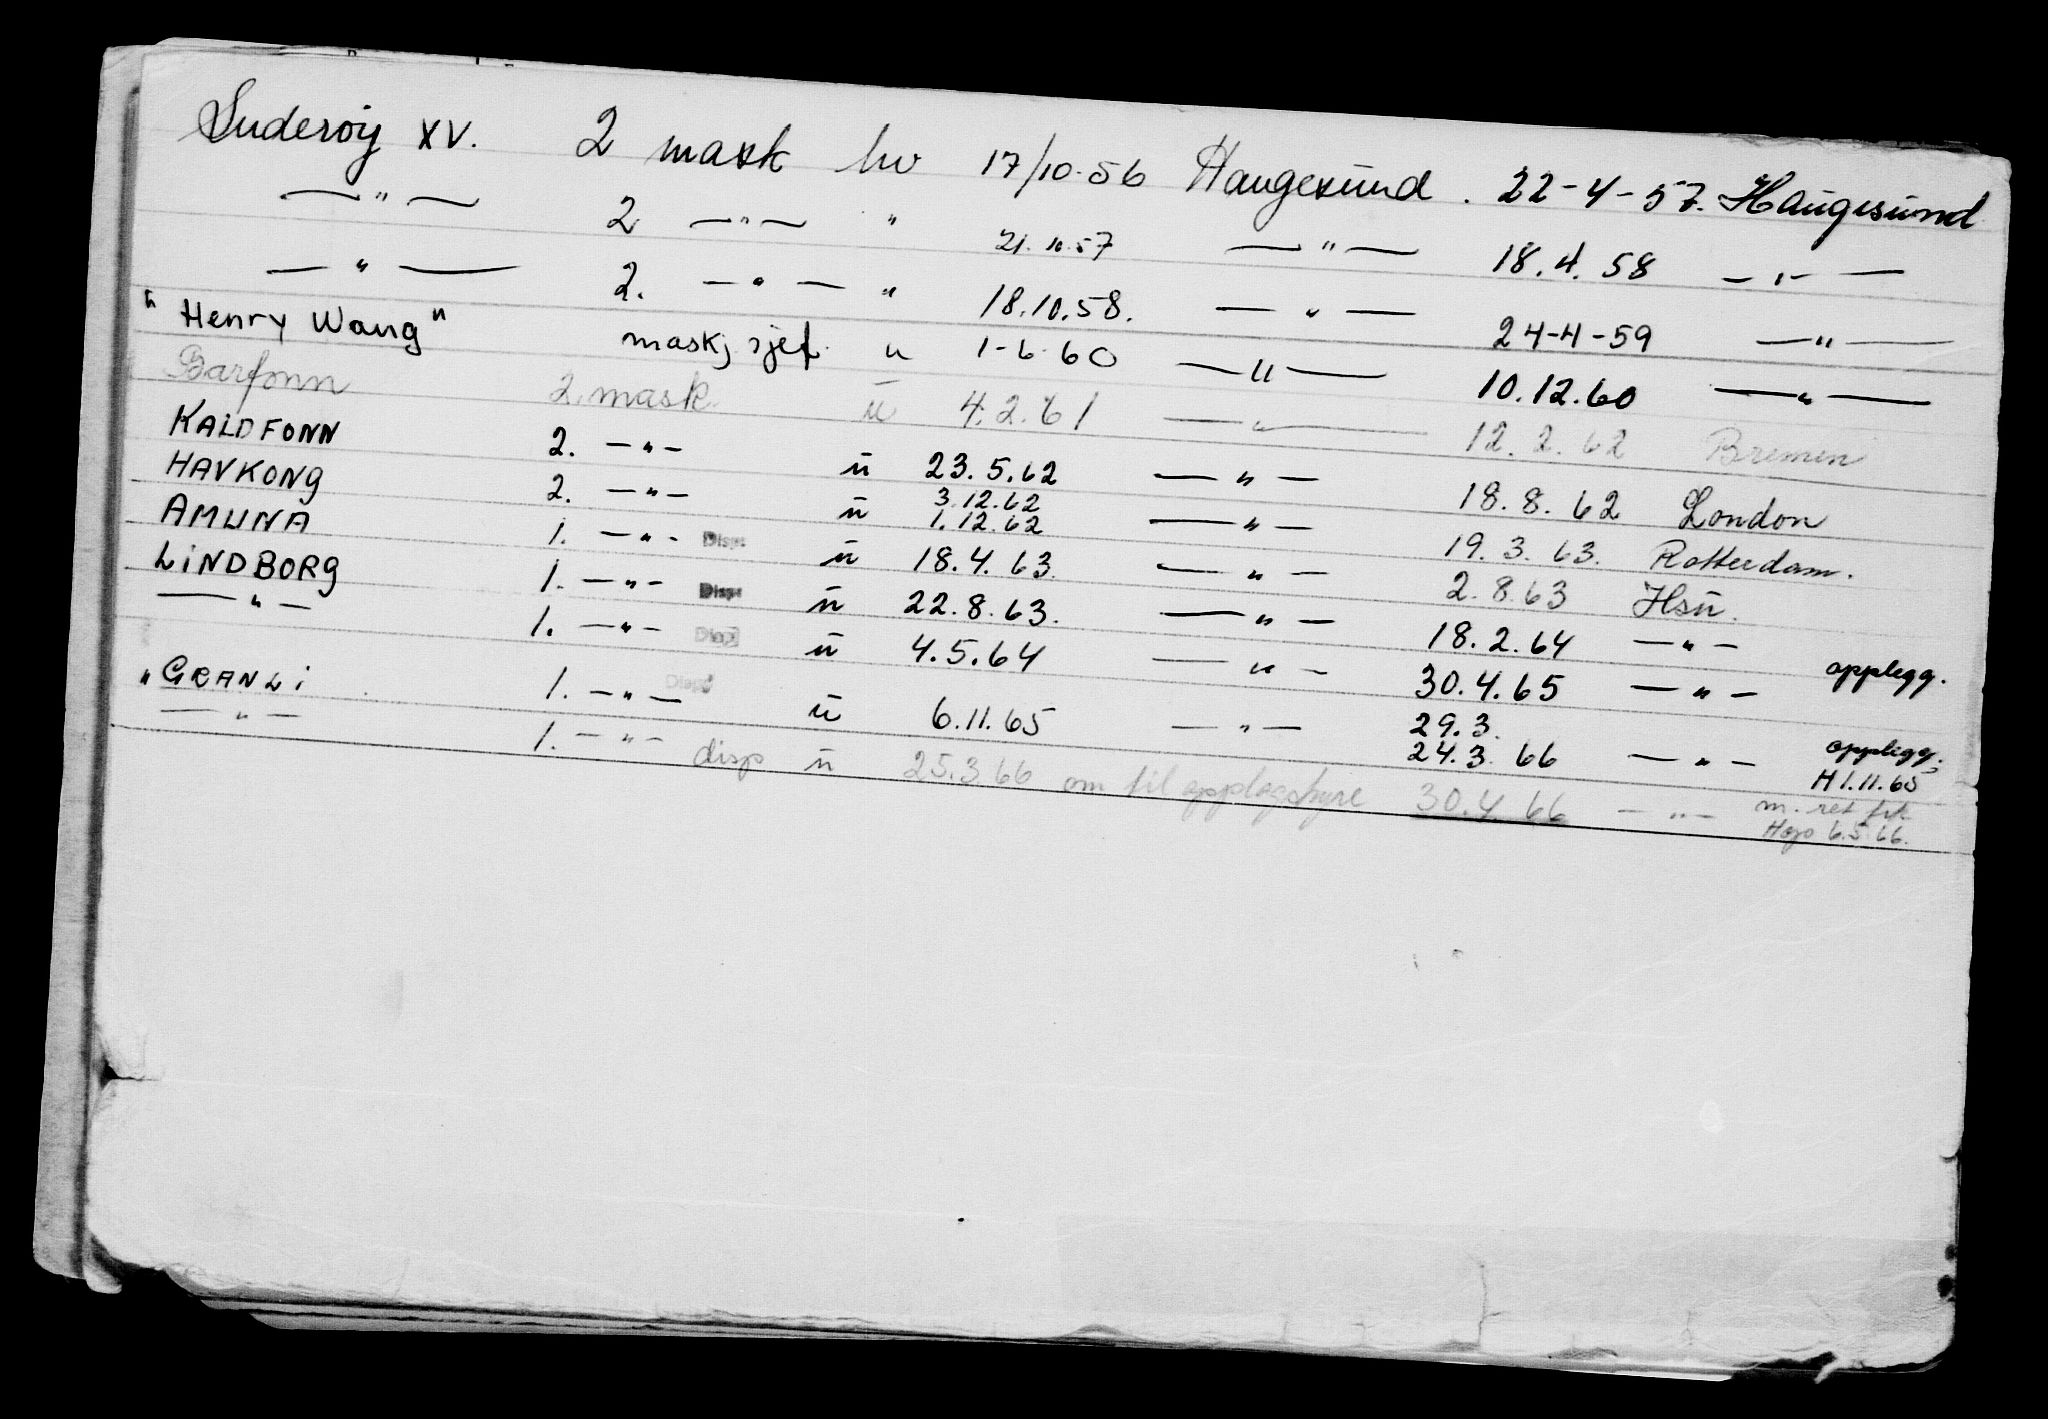 Suderøy XV. 2 mask hv 17/10.56 Haugesund. 22-4-57. Haugesund
—"— 2 —"— " 21.10.57 —"— 18.4.58 —"—
—"— 2. —"— " 18.10.58. —"— 24-4-59 —"—
"Henry Wang" maskj sjef. u 1-6-60 —"— 10.12.60 —"—
Barfonn 2. mask. u 4.2.61 —"— 12.2.62 Bremen
KALDFONN 2. —"— u 23.5.62 —"— 18.8.62 London
HAVKONG 2. —"— u 3.12.62 1.12.62 —"— 19.3.63. Rotterdam.
AMUNA 1. —"— Disp: u 18.4.63. —"— 2.8.63 Hsu.
LINDBORG 1. —"— Disp: u 22.8.63. —"— 18.2.64 —"—
—"— 1. —"— Disp u 4.5.64 —"— 30.4.65 —"— opplegg.
"GRANLI 1. —"— Disp u 6.11.65 —"— 29.3. 24.3.66 —"— opplegg. H 1.11.65
—"— 1. —"— disp u 25.3.66 om til opplagshyre 30.4.66 —"— m. ret frt. 6.5.66.